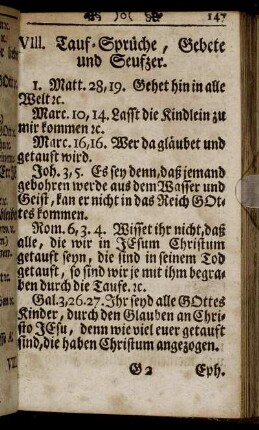 147
VIII. Tauf-Sprüche, Gebete
und Seufzer.
1. Matt. 28,19. Gehet hin in alle
Welt ꝛc.
Marc. 10, 14. Lasst die Kindlein zu
mir kommen ꝛc.
Marc. 16,16. Wer da gläubet und
getauft wird.
Joh. 3,5. Es sey denn, daß jemand
gebohren werde aus dem Wasser und
Geist, kan er nicht in das Reich GOt-
tes kommen.
Rom. 6, 3. 4. Wisset ihr nicht, daß
alle, die wir in JEsum Christum
getauft seyn, die sind in seinem Tod
getauft, so sind wir je mit ihm begra-
ben durch die Taufe. ꝛc.
Gal. 3,26.27. Ihr seyd alle GOttes
Kinder, durch den Glauben an Chri-
sto JEsu, denn wie viel euer getauft
sind, die haben Christum angezogen.
G 2 Eph.